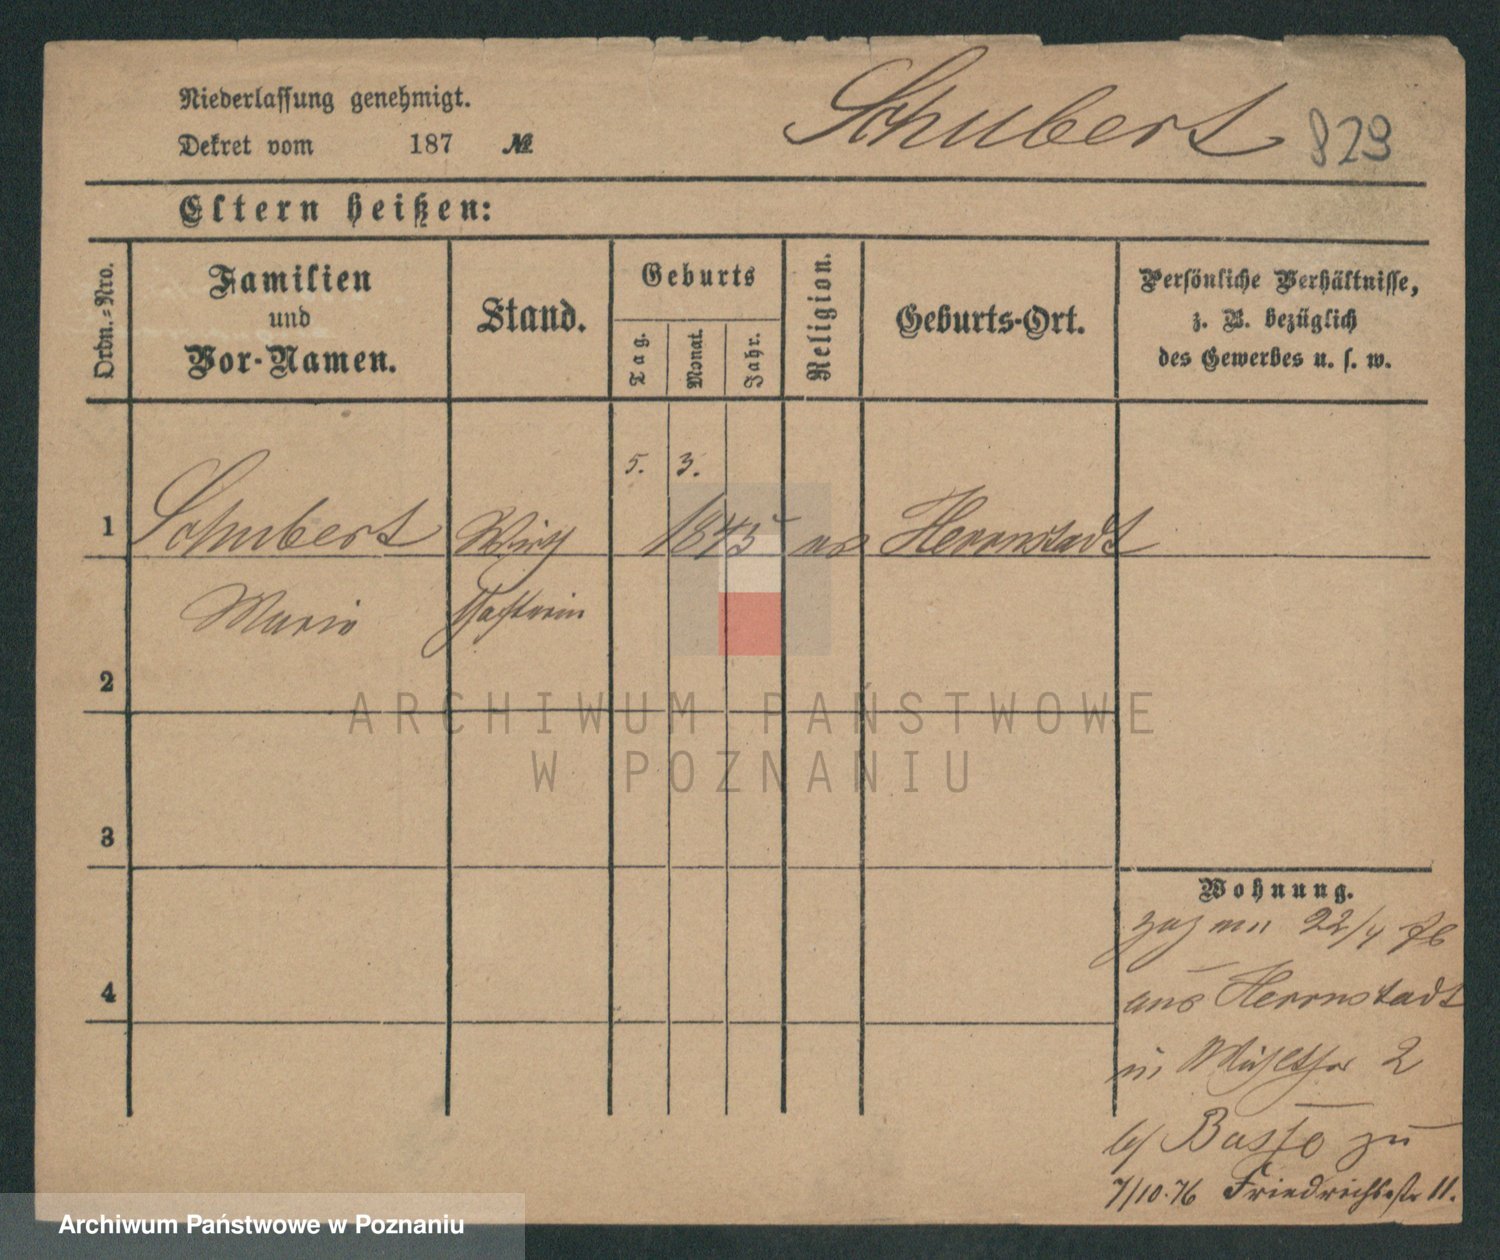 Niederlassung genehmigt.
Schubert 829
Dekret vom 187 №
Eltern heißen:
Ordn.-Nro.
Familien
und
Vor-Namen.
Stand.
Geburts
Tag.
Monat.
Jahr.
Religion.
Geburts-Ort.
Persönliche Verhältnisse,
z. B. bezüglich
des Gewerbes u. s. w.
5. 3.
1 Schubert Wirth 1845 ev Herrnstadt
Marie schafterin
2
3
4
Wohnung.
22/4 76
aus Herrnstadt
in Mühlstr 2
b/ Basse zu
7/10.76 Friedrichsstr 11.
ARCHIWUM PAŃSTWOWE
W POZNANIU
Archiwum Państwowe w Poznaniu